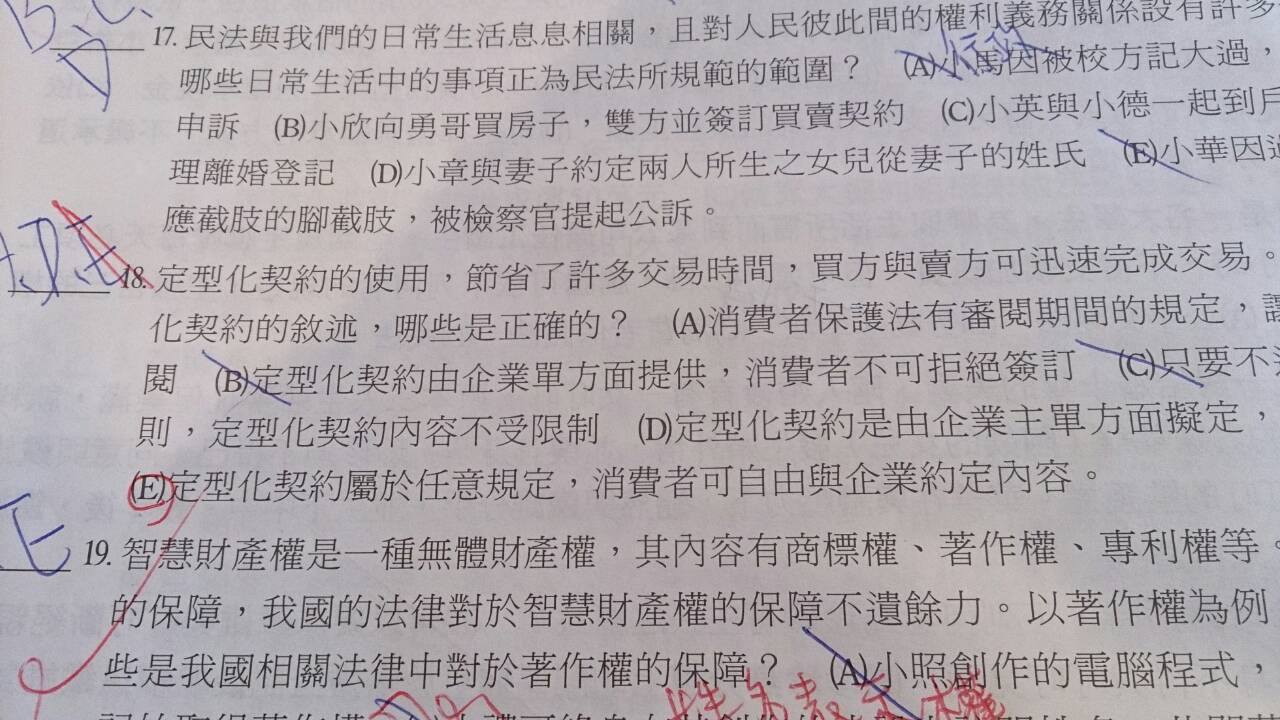 B.C.
D
17. 民法與我們的日常生活息息相關，且對人民彼此間的權利義務關係設有許多
哪些日常生活中的事項正為民法所規範的範圍？ (A)小馬因被校方記大過，
申訴 (B)小欣向勇哥買房子，雙方並簽訂買賣契約 (C)小英與小德一起到戶
理離婚登記 (D)小章與妻子約定兩人所生之女兒從妻子的姓氏 (E)小華因
應截肢的腳截肢，被檢察官提起公訴。
18. 定型化契約的使用，節省了許多交易時間，買方與賣方可迅速完成交易。
化契約的敘述，哪些是正確的？ (A)消費者保護法有審閱期間的規定，
閱 (B)定型化契約由企業單方面提供，消費者不可拒絕簽訂 (C)只要不
則，定型化契約內容不受限制 (D)定型化契約是由企業主單方面擬定，
(E)定型化契約屬於任意規定，消費者可自由與企業約定內容。
E
19. 智慧財產權是一種無體財產權，其內容有商標權、著作權、專利權等。
的保障，我國的法律對於智慧財產權的保障不遺餘力。以著作權為例
些是我國相關法律中對於著作權的保障？ (A)小照創作的電腦程式，